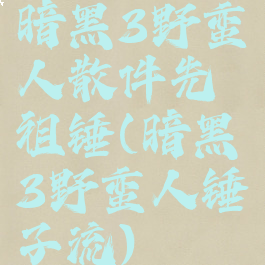 暗黑3野蛮
人散件先
祖锤(暗黑
3野蛮人锤
子流)